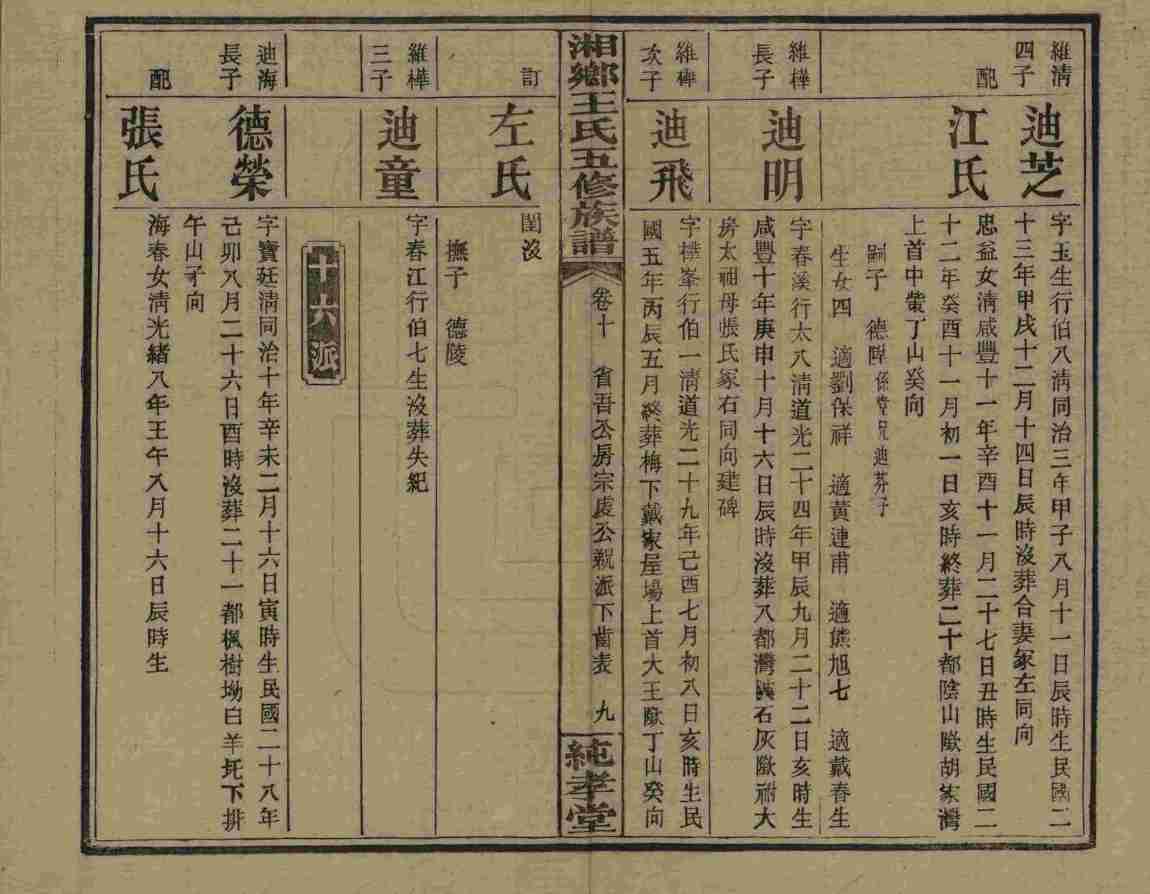 維清
四子
迪芝
字玉生行伯八清同治三年甲子八月十一日辰時生民國二
十三年甲戌十二月十四日辰時沒葬合妻冢左同向
配
江氏
忠益女清咸豐十一年辛酉十一月二十七日丑時生民國二
十二年癸酉十一月初一日亥時終葬二十都陰山歐胡家灣
上首中塋丁山癸向
嗣子 德 係堂兄迪芬子
生女四 適劉保祥 適黃連甫 適熊旭七 適戴春生
維樺
長子
迪明
字春溪行太八清道光二十四年甲辰九月二十二日亥時生
咸豐十年庚申十月十六日辰時沒葬八都灣 石灰歐祔大
房太祖母張氏冢右同向建碑
維樺
次子
迪飛
字樺峯行伯一清道光二十九年己酉七月初八日亥時生民
國五年丙辰五月終葬梅下戴家屋場上首大王歐丁山癸向
湘鄉王氏五修族譜
卷十 省吾公房宗 公 派下齒表 九
純孝堂
訂
左氏
閨沒
撫子 德陵
維樺
三子
迪童
字春江行伯七生沒葬失紀
二十六派
迪海
長子
德榮
字寶廷清同治十年辛未二月十六日寅時生民國二十八年
己卯八月二十六日酉時沒葬二十一都楓樹坳白羊圫下排
午山子向
配
張氏
海春女清光緒八年壬午八月十六日辰時生